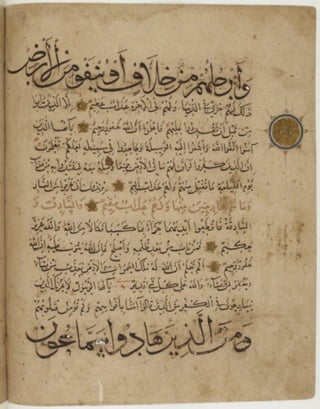 وأرجلهم من خلاف أو ينفوا من الأرض
ذلك لهم خزي في الدنيا ولهم في الآخرة عذاب عظيم إلا الذين تابوا
من قبل أن تقدروا عليهم فاعلموا أن الله غفور رحيم يا أيها الذين
آمنوا اتقوا الله وابتغوا إليه الوسيلة وجاهدوا في سبيله لعلكم تفلحون
إن الذين كفروا لو أن لهم ما في الأرض جميعا ومثله معه ليفتدوا به من عذاب
يوم القيمة ما تقبل منهم ولهم عذاب أليم يريدون أن يخرجوا من النار
وما هم بخارجين منها ولهم عذاب مقيم والسارق و
السارقة فاقطعوا أيديهما جزاء بما كسبا نكالا من الله والله عزيز
حكيم فمن تاب من بعد ظلمه وأصلح فإن الله يتوب عليه إن الله
غفور رحيم ألم تعلم أن الله له ملك السموات والأرض يعذب من يشاء
ويغفر لمن يشاء والله على كل شيء قدير يا أيها الرسول لا يحزنك الذين
يسارعون في الكفر من الذين قالوا آمنا بأفواههم ولم تؤمن قلوبهم
ومن الذين هادوا سماعون